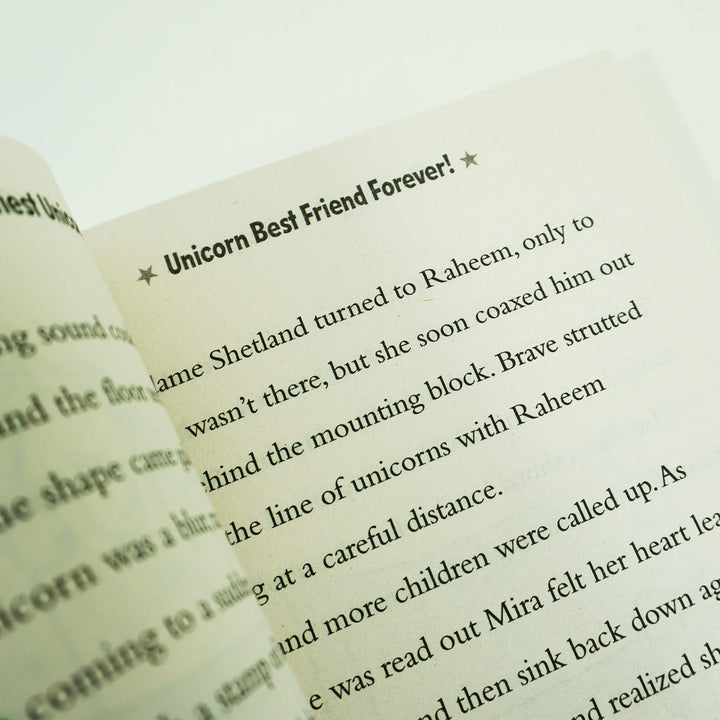 ng sound
and the floor
shape came
was a blur
coming to a
a stamp
Unicorn Best Friend Forever!
ame Shetland turned to Raheem, only to
wasn't there, but she soon coaxed him out
hind the mounting block. Brave strutted
the line of unicorns with Raheem
g at a careful distance.
nd more children were called up. As
e was read out Mira felt her heart lea
nd then sink back down ag
nd realized sh